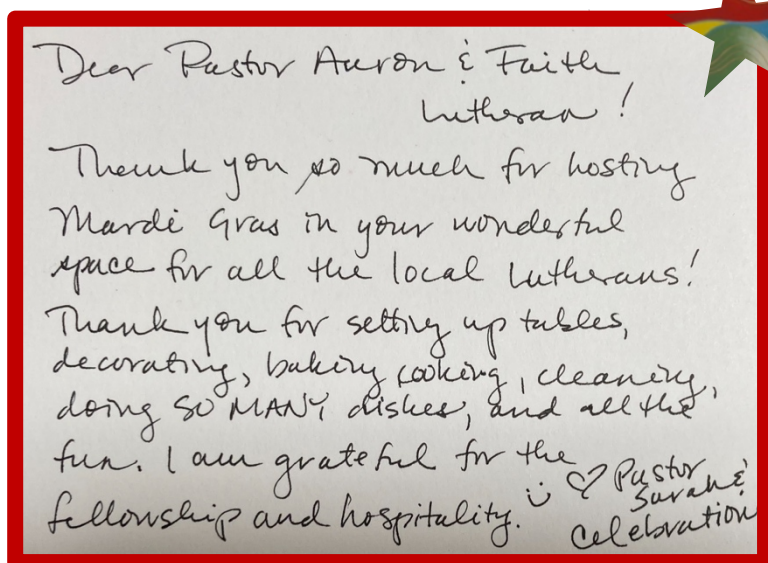 Dear Pastor Aaron & Faith
Lutheran!
Thank you so much for hosting
Mardi Gras in your wonderful
space for all the local Lutherans!
Thank you for setting up tables,
decorating, baking cooking, cleaning,
doing SO MANY dishes, and all the
fun. I am grateful for the
fellowship and hospitality. :) ♡ Pastor
Sarah &
Celebration